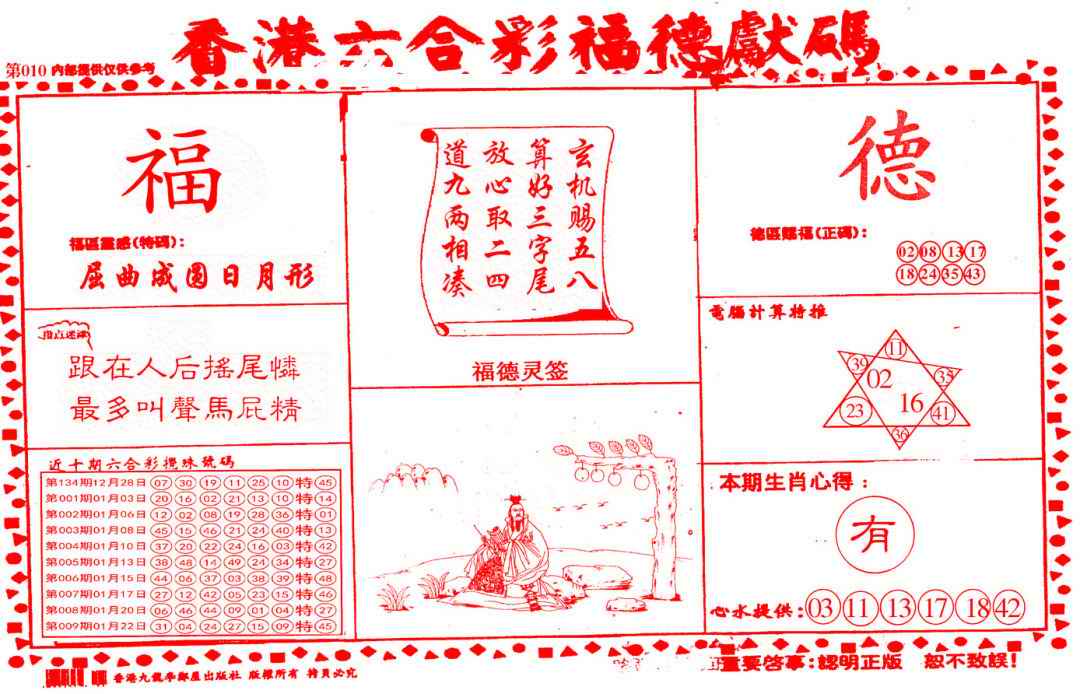 香港六合彩福德獻碼
第010 内部提供仅供参考
福
福區靈感(特碼):
屈曲成圆日月形
指点迷津
跟在人后搖尾憐
最多叫聲馬屁精
近十期六合彩攪珠號碼
第134期12月28日 07 30 19 11 25 10 特 45
第001期01月03日 20 16 02 21 13 10 特 14
第002期01月06日 12 02 08 19 28 36 特 01
第003期01月08日 45 15 46 21 24 40 特 13
第004期01月10日 37 20 22 24 16 03 特 42
第005期01月13日 38 48 14 49 24 34 特 27
第006期01月15日 44 06 37 03 38 39 特 48
第007期01月17日 27 12 42 05 23 15 特 46
第008期01月20日 06 46 44 09 01 04 特 27
第009期01月22日 31 04 24 27 15 09 特 45
玄机赐五八
算好三字尾
放心取二四
道九两相凑
福德灵签
德
德區賜福(正碼):
02 08 13 17
18 24 35 43
電腦計算特推
11
39 02 33
23 16 41
36
本期生肖心得:
有
心水提供: 03 11 13 17 18 42
重要啓事:認明正版 恕不致誤!
香港九龍李鄭屋出版社 版權所有 持員必究